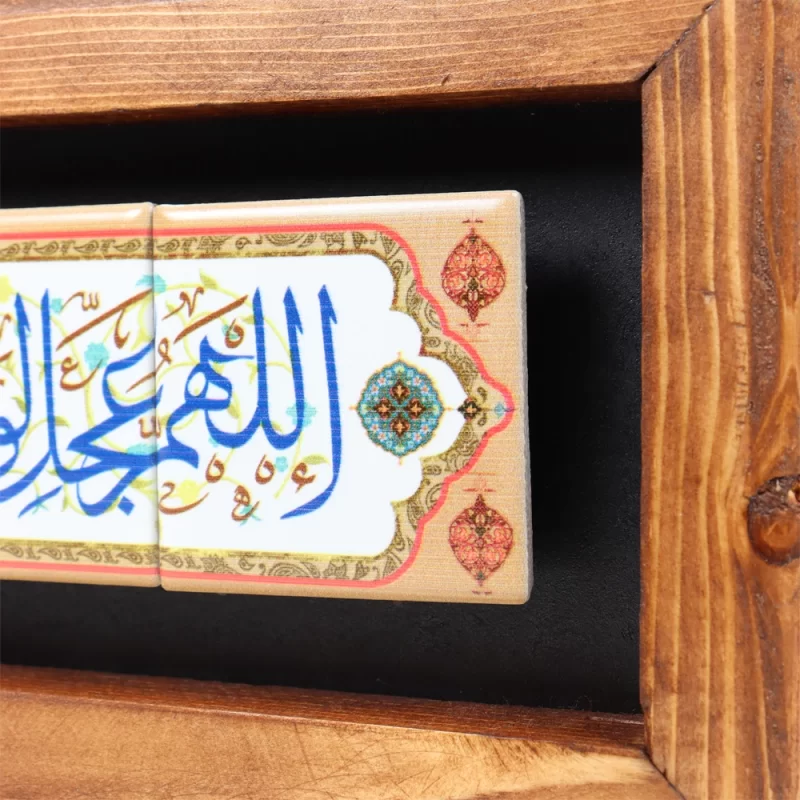 اللهم عجل لو